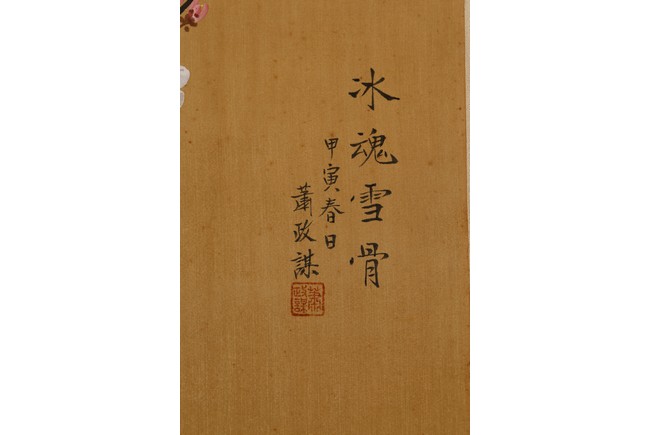 冰魂雪骨
甲寅春日
蕭政謀